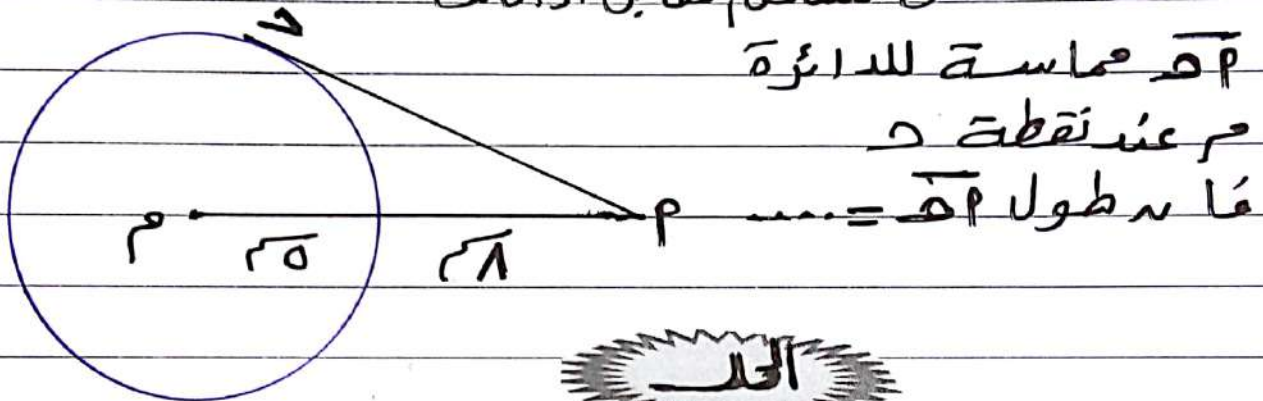 أحـ مماسة للدائرة
م عند نقطة حـ
فإن طول أحـ = .....
حـ
م
٥سم
٨سم
أ
الحل